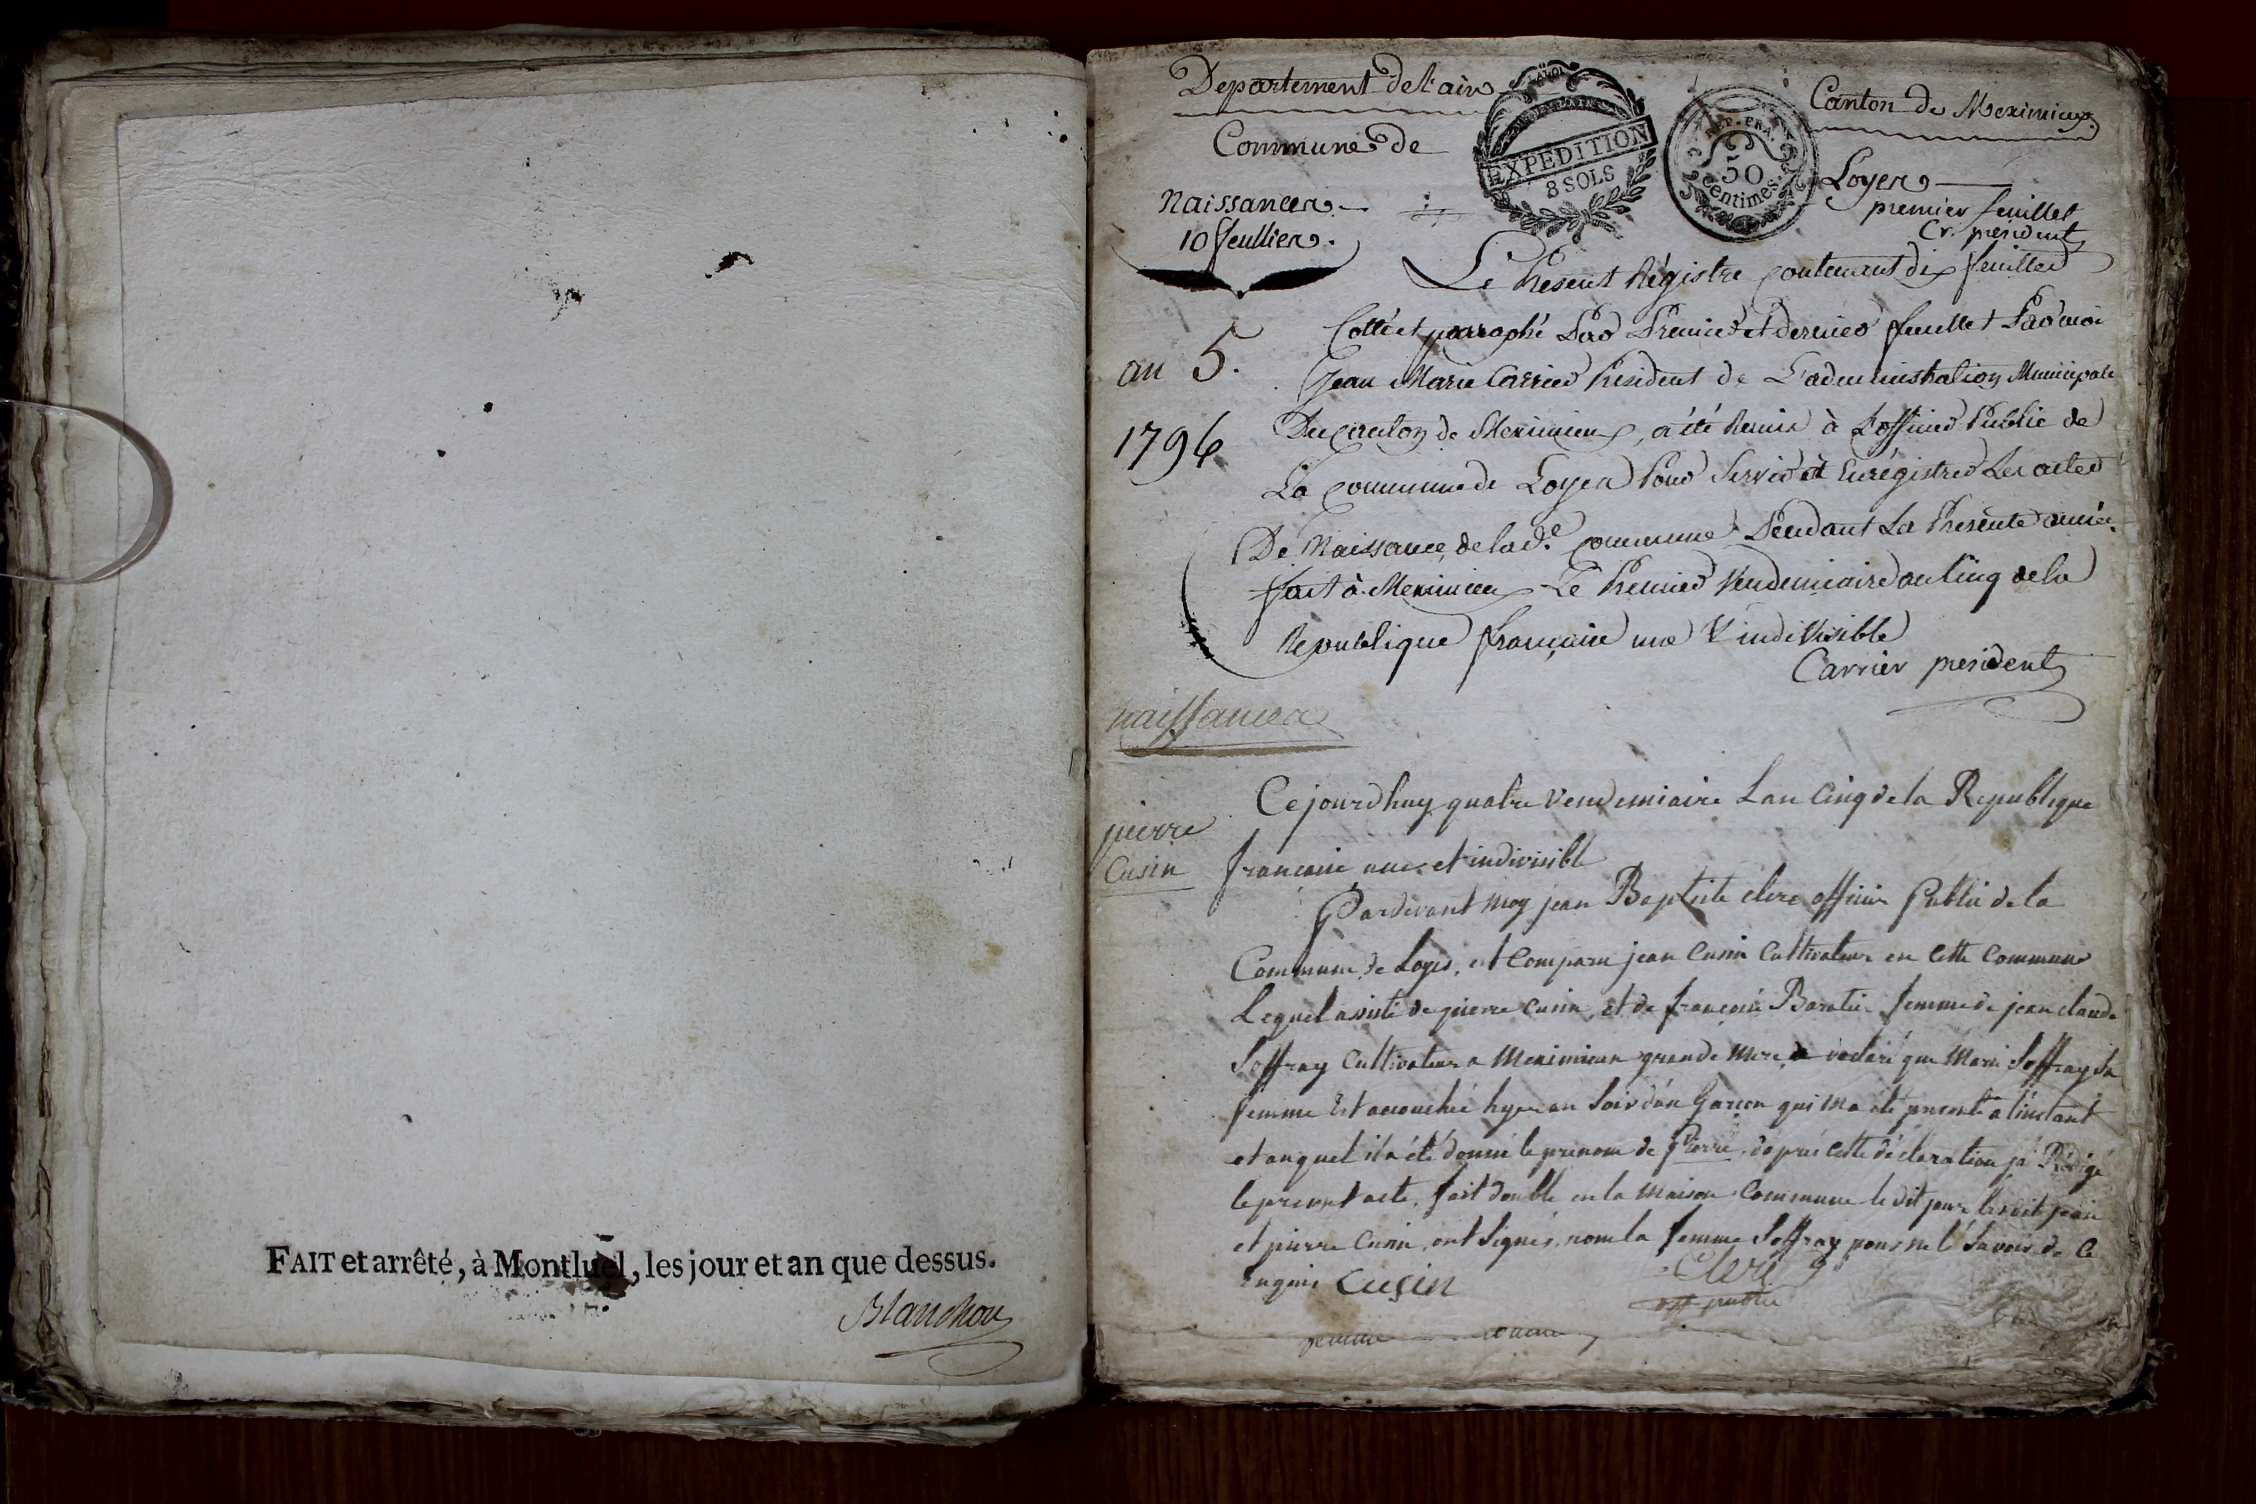 FAIT et arrêté, à Montluel, les jour et an que dessus.
Blanchon
Departement de l'ain
Canton de Meximieux
Commune de
Loyes
EXPEDITION
8 SOLS
REP. FRA.
50
centimes.
Naissances
10 feulliers.
premier feuillet
Cr. president
Le Présent Régistre contenant dix feuillets
Cotté et paraphé Par Premier et dernier feuillet Par moi
Jean Marie Carrier Président de L'administration Municipale
an 5.
1796
Du canton de Meximieux, a été Remis à L'officier Public de
La commune de Loyes Pour Servir à Enrégistrer Les actes
De Naissance de lad.e commune Pendant La Présente année
fait à Meximieux Le Premier Vendemiaire an Cinq de la
Republique française une & indivisible
Carrier president
naissances
pierre
Cusin
Cejourdhuy quatre vendemiaire Lan Cinq de la Republique
francaise une et indivisible
Pardevant moy jean Baptiste clerc officier Public de la
Commune de Loyes, est Comparu jean Cusin Cultivateur en Cette Commune
Lequel assisté de pierre Cusin, et de françoise Baratier femme de jean claude
Soffray Cultivateur a Meximieux grande mere, a déclaré que Marie Soffray sa
femme Est accouchée hyer au Soir d'un Garcon qui ma eté presenté a l'instant
et auquel il a été donné le prenom de Pierre, d'après cette déclaration j'ai Rédigé
le present acte, fait double en la maison Commune le dit jour lesdit jean
et pierre Cusin, ont Signés, non la femme Soffray pour ne le Savoir de Ce
Enquis Cusin
Clerc
off public